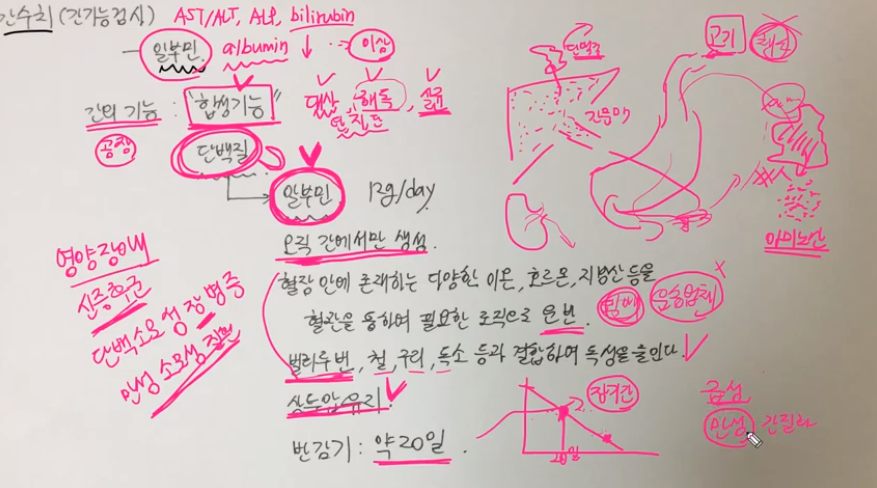 간수치 (간기능검사) AST/ALT, ALP, bilirubin
알부민 albumin ↓ 이상
간의 기능 : "합성기능" 대사, 해독, 살균
공장
단백질
알부민 12g/day
오직 간에서만 생성.
혈장 안에 존재하는 다양한 이온, 호르몬, 지방산 등을
혈관을 통하여 필요한 조직으로 운반.
빌리루빈, 철, 구리, 독소 등과 결합하여 독성을 줄인다.
삼투압유지
반감기 : 약20일.
영양장애
신증후군
단백소모성 장병증
만성 소모성 질환
고기
단백질
아미노산
운송업체
20일
급성
만성 간질환